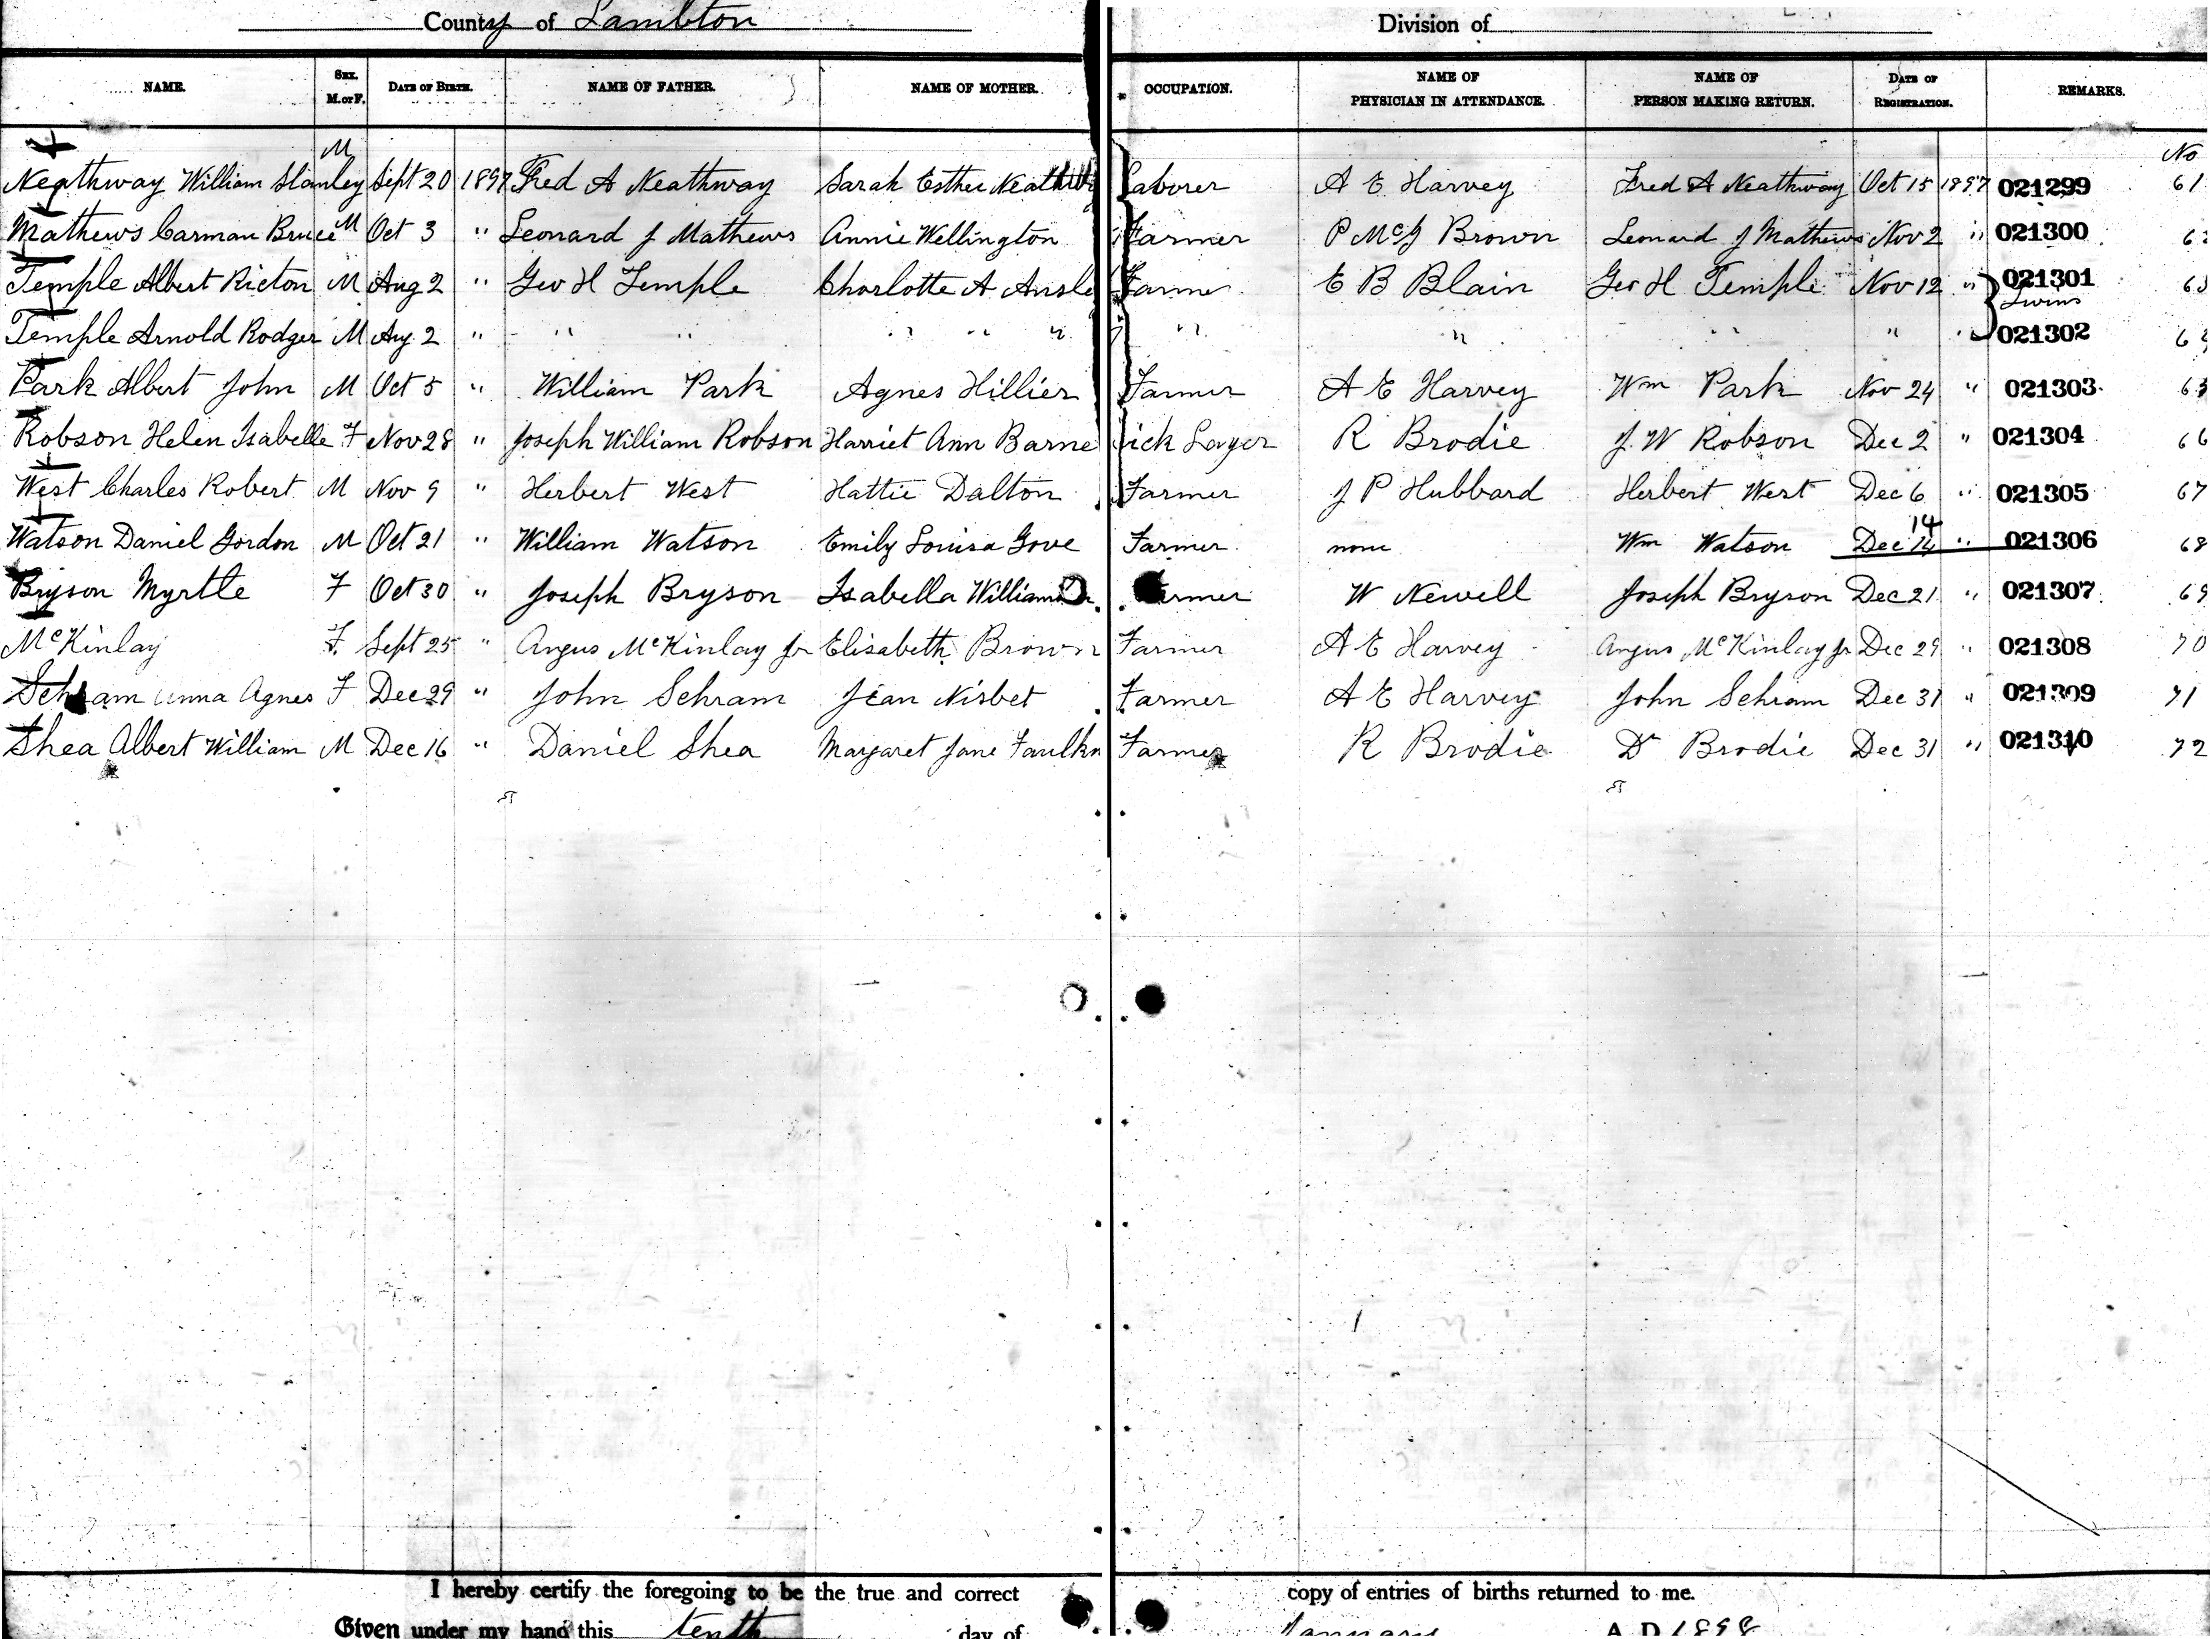 County of Lambton Division of
NAME. SEX. M. or F. DATE OF BIRTH. NAME OF FATHER. NAME OF MOTHER. OCCUPATION. NAME OF PHYSICIAN IN ATTENDANCE. NAME OF PERSON MAKING RETURN. DATE OF REGISTRATION. REMARKS.
No
Neathway William Stanley M Sept 20 1897 Fred A Neathway Sarah Esther Laborer A E Harvey Fred A Neathway Oct 15 1897 021299 61
Mathews Carman Bruce M Oct 3 " Leonard J Mathews Annie Wellington Farmer P McG Brown Leonard J Mathews Nov 2 " 021300
Temple Albert Ricton M Aug 2 " Geo H Temple Charlotte A Ansle Farmer E B Blain Geo H Temple Nov 12 " 021301
Twins
Temple Arnold Rodger M Aug 2 " " " " " " " " " " " " " 021302
Park Albert John M Oct 5 " William Park Agnes Hillier Farmer A E Harvey Wm Park Nov 24 " 021303
Robson Helen Isabelle F Nov 28 " Joseph William Robson Harriet Ann Barne ick Layer R Brodie J. W Robson Dec 2 " 021304 66
West Charles Robert M Nov 9 " Herbert West Hattie Dalton Farmer J P Hubbard Herbert West Dec 6 " 021305 67
Watson Daniel Gordon M Oct 21 " William Watson Emily Louisa Gove Farmer none Wm Watson Dec 14 " 021306 68
Bryson Myrtle F Oct 30 " Joseph Bryson Isabella rmer W Newell Joseph Bryson Dec 21 " 021307 69
McKinlay F. Sept 25 " Angus McKinlay jr Elisabeth Brown Farmer A E Harvey Angus McKinlay jr Dec 29 " 021308 70
Schram Anna Agnes F Dec 29 " John Schram Jean Nisbet Farmer A E Harvey John Schram Dec 31 " 021309 71
Shea Albert William M Dec 16 " Daniel Shea Margaret Jane Faulkn Farmer R Brodie Dr Brodie Dec 31 " 021310 72
I hereby certify the foregoing to be the true and correct copy of entries of births returned to me.
Given under my hand this tenth day of January A. D. 1898